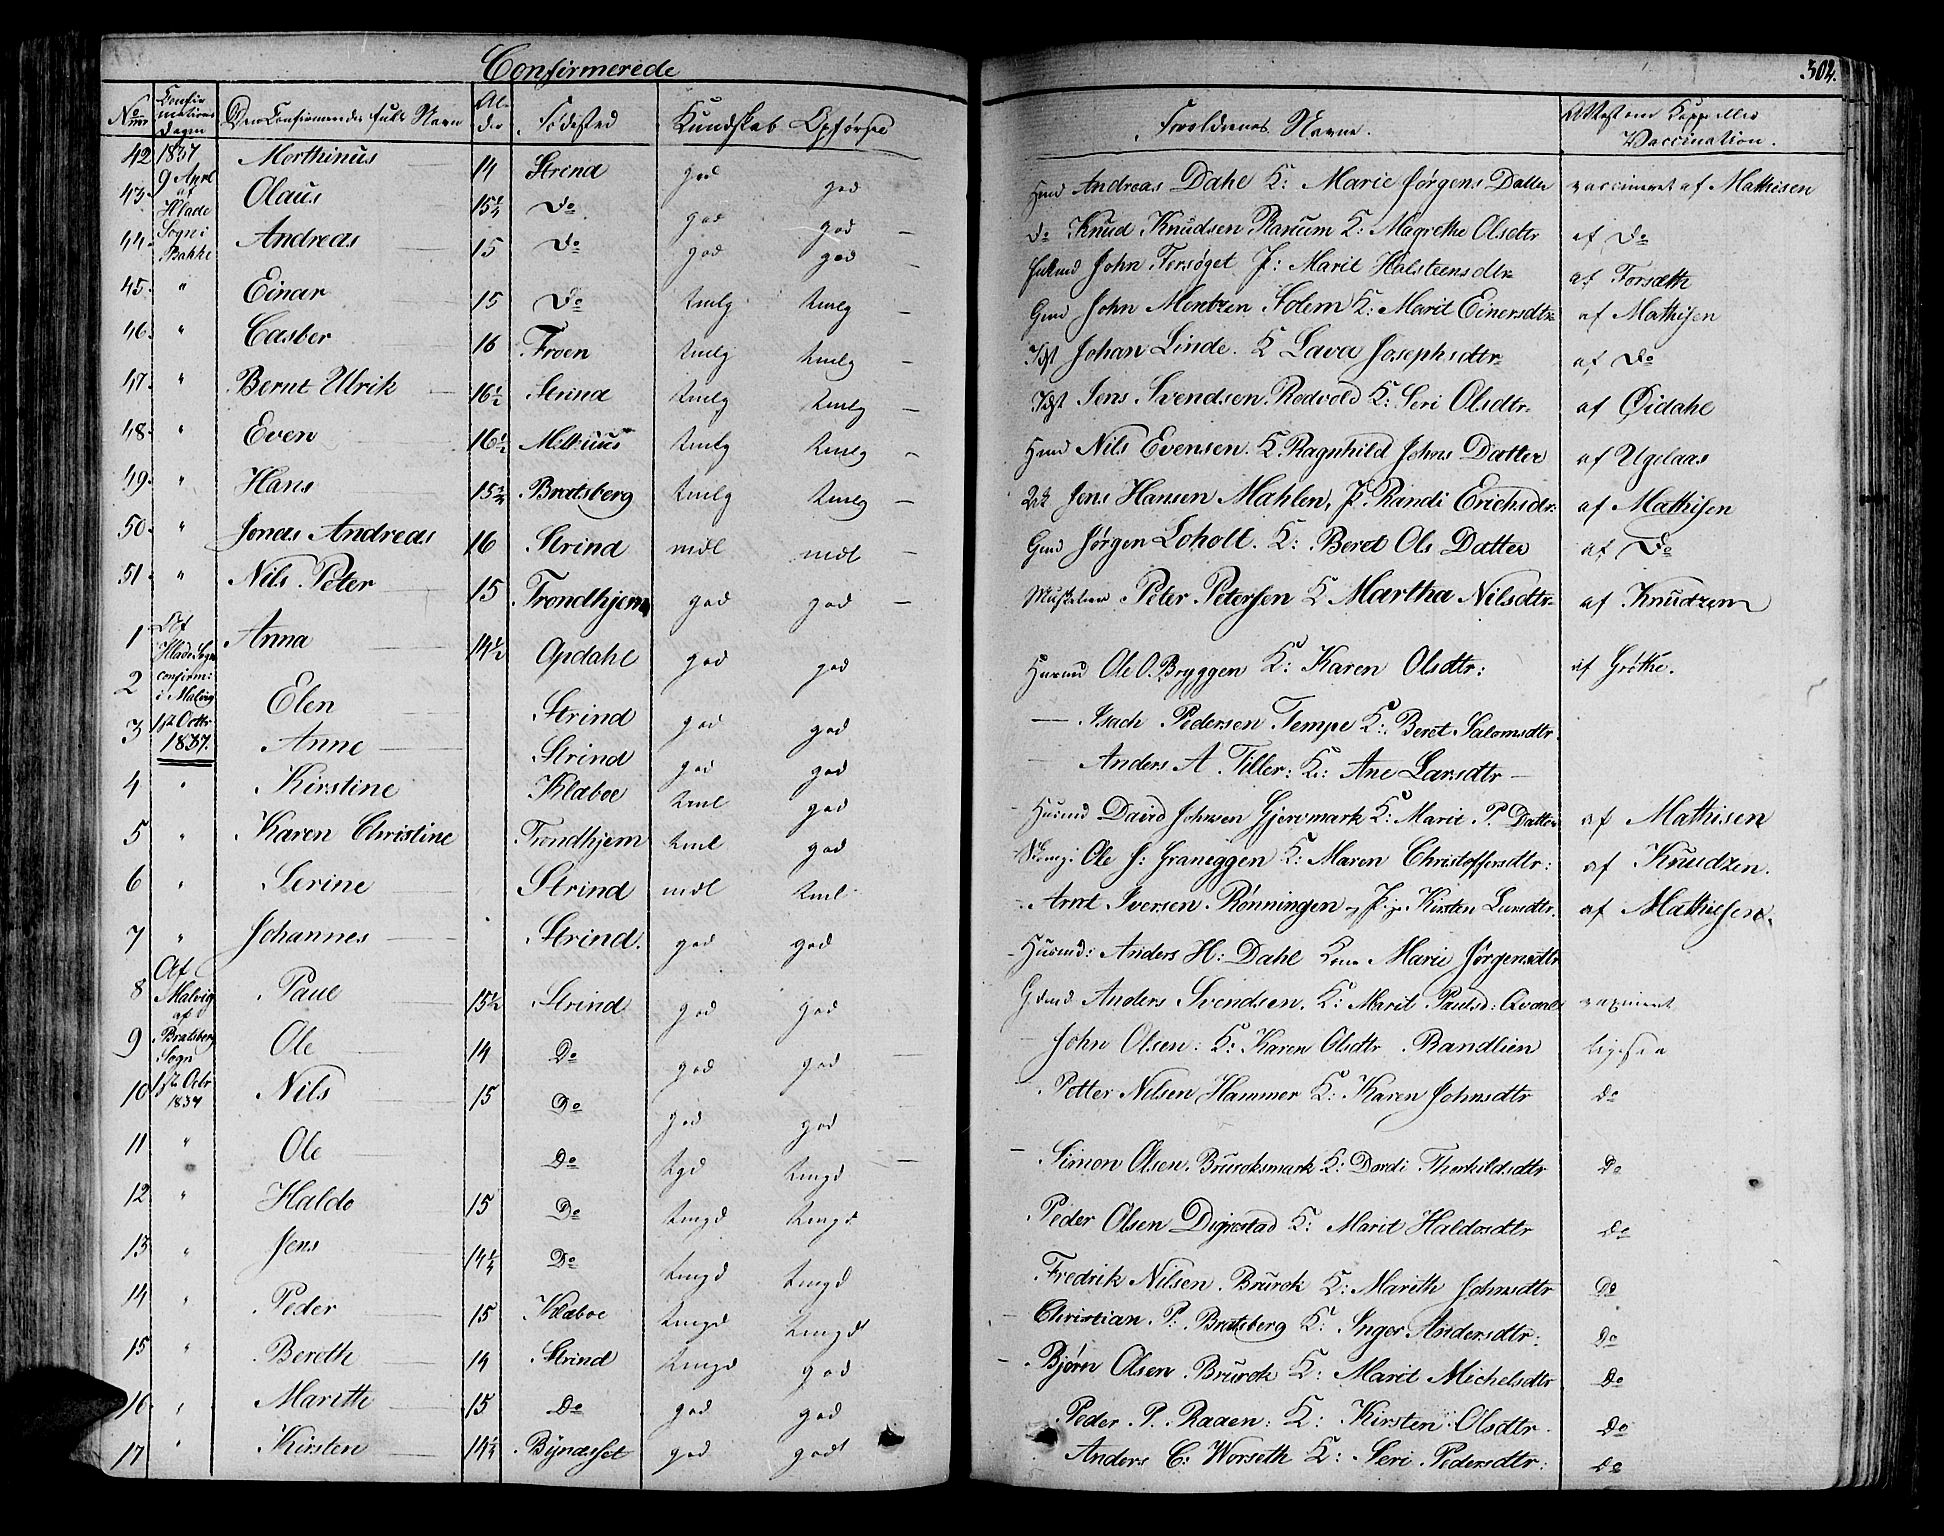 Confirmerede
302.
No Confirmations Dagen Den Confirmerendes fulde Navn Alder Fødested Kundskab Opførsel Forældrenes Navne. Attest om Koppeller Vaccination.
42 1837 Morthinus 14 Strind god god Andreas Dahl K: Marie Jørgens Datter vaccineret af Mathisen
43. 9 Apr af Hlade Olaus 15¼ Do god god — Do Knud Knudsen Ranum K: Magrethe Olsdtr af Do
44. Sogn i Bakke Andreas 15 Do god god — John Forsøget J: Marit Halsteensdtr af Forsæth
45. " Einar 15 Do tmlg tmlg — Gmd John Mentzen Solem K: Marit Einersdtr af Mathisen
46. " Casber 16 Froen tmlg tmlg — Johan Linde. K Lava Josephsdtr af Do
47. " Bernt Ulrik 16½ Strind tmlg tmlg — Jens Svendsen Rodvold K: Seri Olsdtr af Øidahl
48. " Even 16½ Melhuus tmlg tmlg — Hmd Nils Evensen. K. Ragnhild Johns Datter af Ugelaas
49. " Hans 15¾ Bratsberg tmlg tmlg — Jens Hansen Mahlen, P. Randi Erichsdtr. af Mathisen
50. " Jonas Andreas 16 Strind mdl mdl — Gmd Jørgen Loholt. K: Beret Ols Datter af Do
51. " Nils Peter 15 Trondhjem god god — Peter Petersen K Martha Nilsdtr af Knudzen
1 Af Hlade Sogn Anna 14½ Opdahl god god Husmd Ole O. Bryggen K: Karen Olsdtr: af Grøthe.
2 confirm: i Malvig Elen Strind god god — Isach Pedersen Tempe K: Beret Salomsdtr.
3 1ste Octbr 1837. Anne Strind god god — Anders A Tiller: K: Ane Larsdtr —
4 " Kirstine Klæboe tml god — Husmd David Johnsen Gjervmark K: Marit P. Datter af Mathisen
5 " Karen Christine Trondhjem tml god Ole J: Graneggen K: Maren Christoffersdtr: af Knudzen.
6 " Serine Strind mdl tml — Arnt Iversen Rønningen Kirsten Larsdtr. af Mathisen.
7 " Johannes Strind. god god — Husmd: Anders H: Dahl Kone Marie Jørgensdtr
8 Af Malvig Paul 15½ Strind god god Gdmd Anders Svendsen. K: Marit Paulsd: Qvarnl vaxineret
9 af Bratsberg Sogn Ole 14 Do god god — John Olsen: K: Karen Olsdtr Randlien ligesaa
10 1ste Octbr 1837 Nils 15 Do god god — Petter Nilsen Hammer K: Karen Johnsdtr do
11 " Ole Do tgd tmgd — Simon Olsen. Bruroksmark K: Dordi Thorkildsdtr Do
12 " Haldo 15 Do tmgd tmgd Peder Olsen Digrestad K: Marit Haldosdtr do
13 " Jens 14¼ Do tmgd tmgd Fredrik Nilsen Brurok K: Marith Johnsdtr Do
14 " Peder 15 Klæboe tmgd tmgd — Christian P: Bratsberg K: Inger Andersdtr: Do
15 " Bereth 14 Strind tmgd god — Bjørn Olsen Brurok K: Marit Michelsdtr Do
16 " Marith 15 Do god god Peder P. Raaen: K: Kirsten Olsdtr. Do
17 " Kirsten 14½ Bynæsset god godt Anders C: Worseth K: Seri Pedersdtr: Do